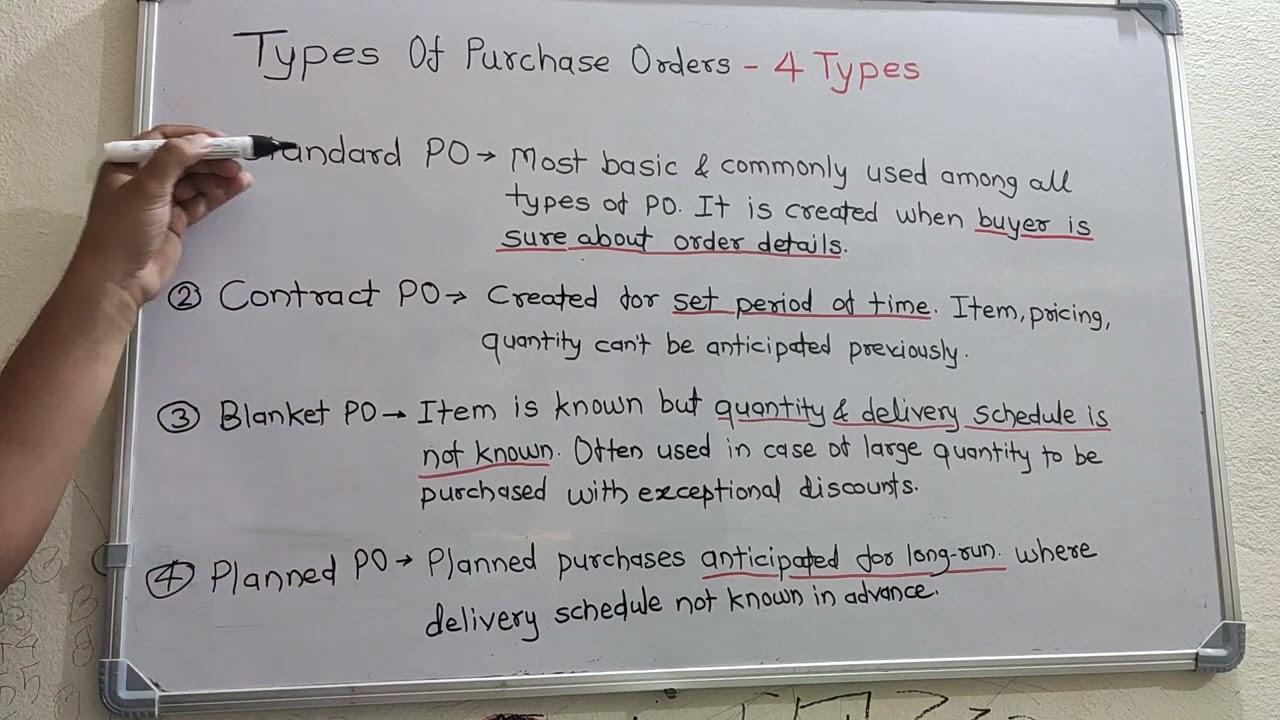 Types Of Purchase Orders - 4 Types
Standard PO → Most basic & commonly used among all
types of PO. It is created when buyer is
sure about order details.
② Contract PO → Created for set period of time. Item, pricing,
quantity can't be anticipated previously.
③ Blanket PO → Item is known but quantity & delivery schedule is
not known. Often used in case of large quantity to be
purchased with exceptional discounts.
④ Planned PO → Planned purchases anticipated for long-run. where
delivery schedule not known in advance.